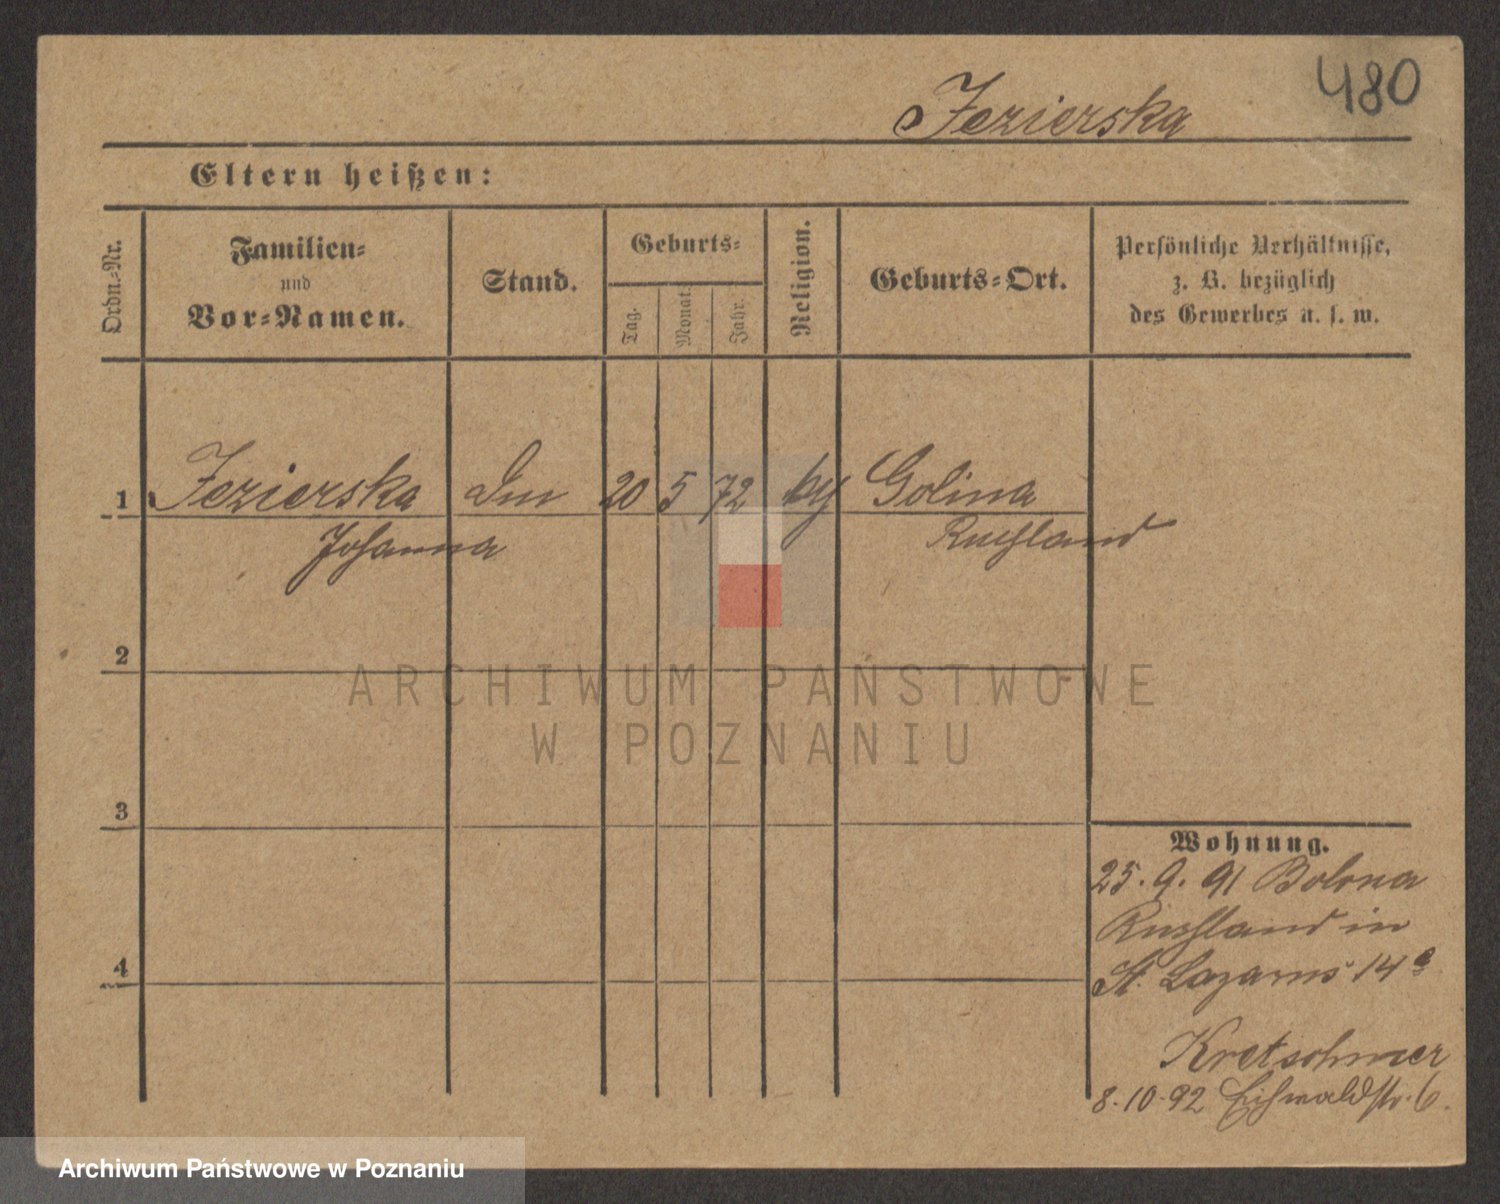 480
Jezierska
Eltern heißen:
Ordn.-Nr.
Familien-
und
Vor-Namen.
Stand.
Geburts-
Tag.
Monat.
Jahr.
Religion.
Geburts-Ort.
Persönliche Verhältnisse,
z. B. bezüglich
des Gewerbes u. s. w.
1 Jezierska 20 5 72 Golina
Johanna Russland
2
3
4
Wohnung.
25. 9. 91
Russland in
St. Lazarus 14
Kretschmer
8.10.92 Eichwaldstr. 6.
ARCHIWUM PAŃSTWOWE
W POZNANIU
Archiwum Państwowe w Poznaniu